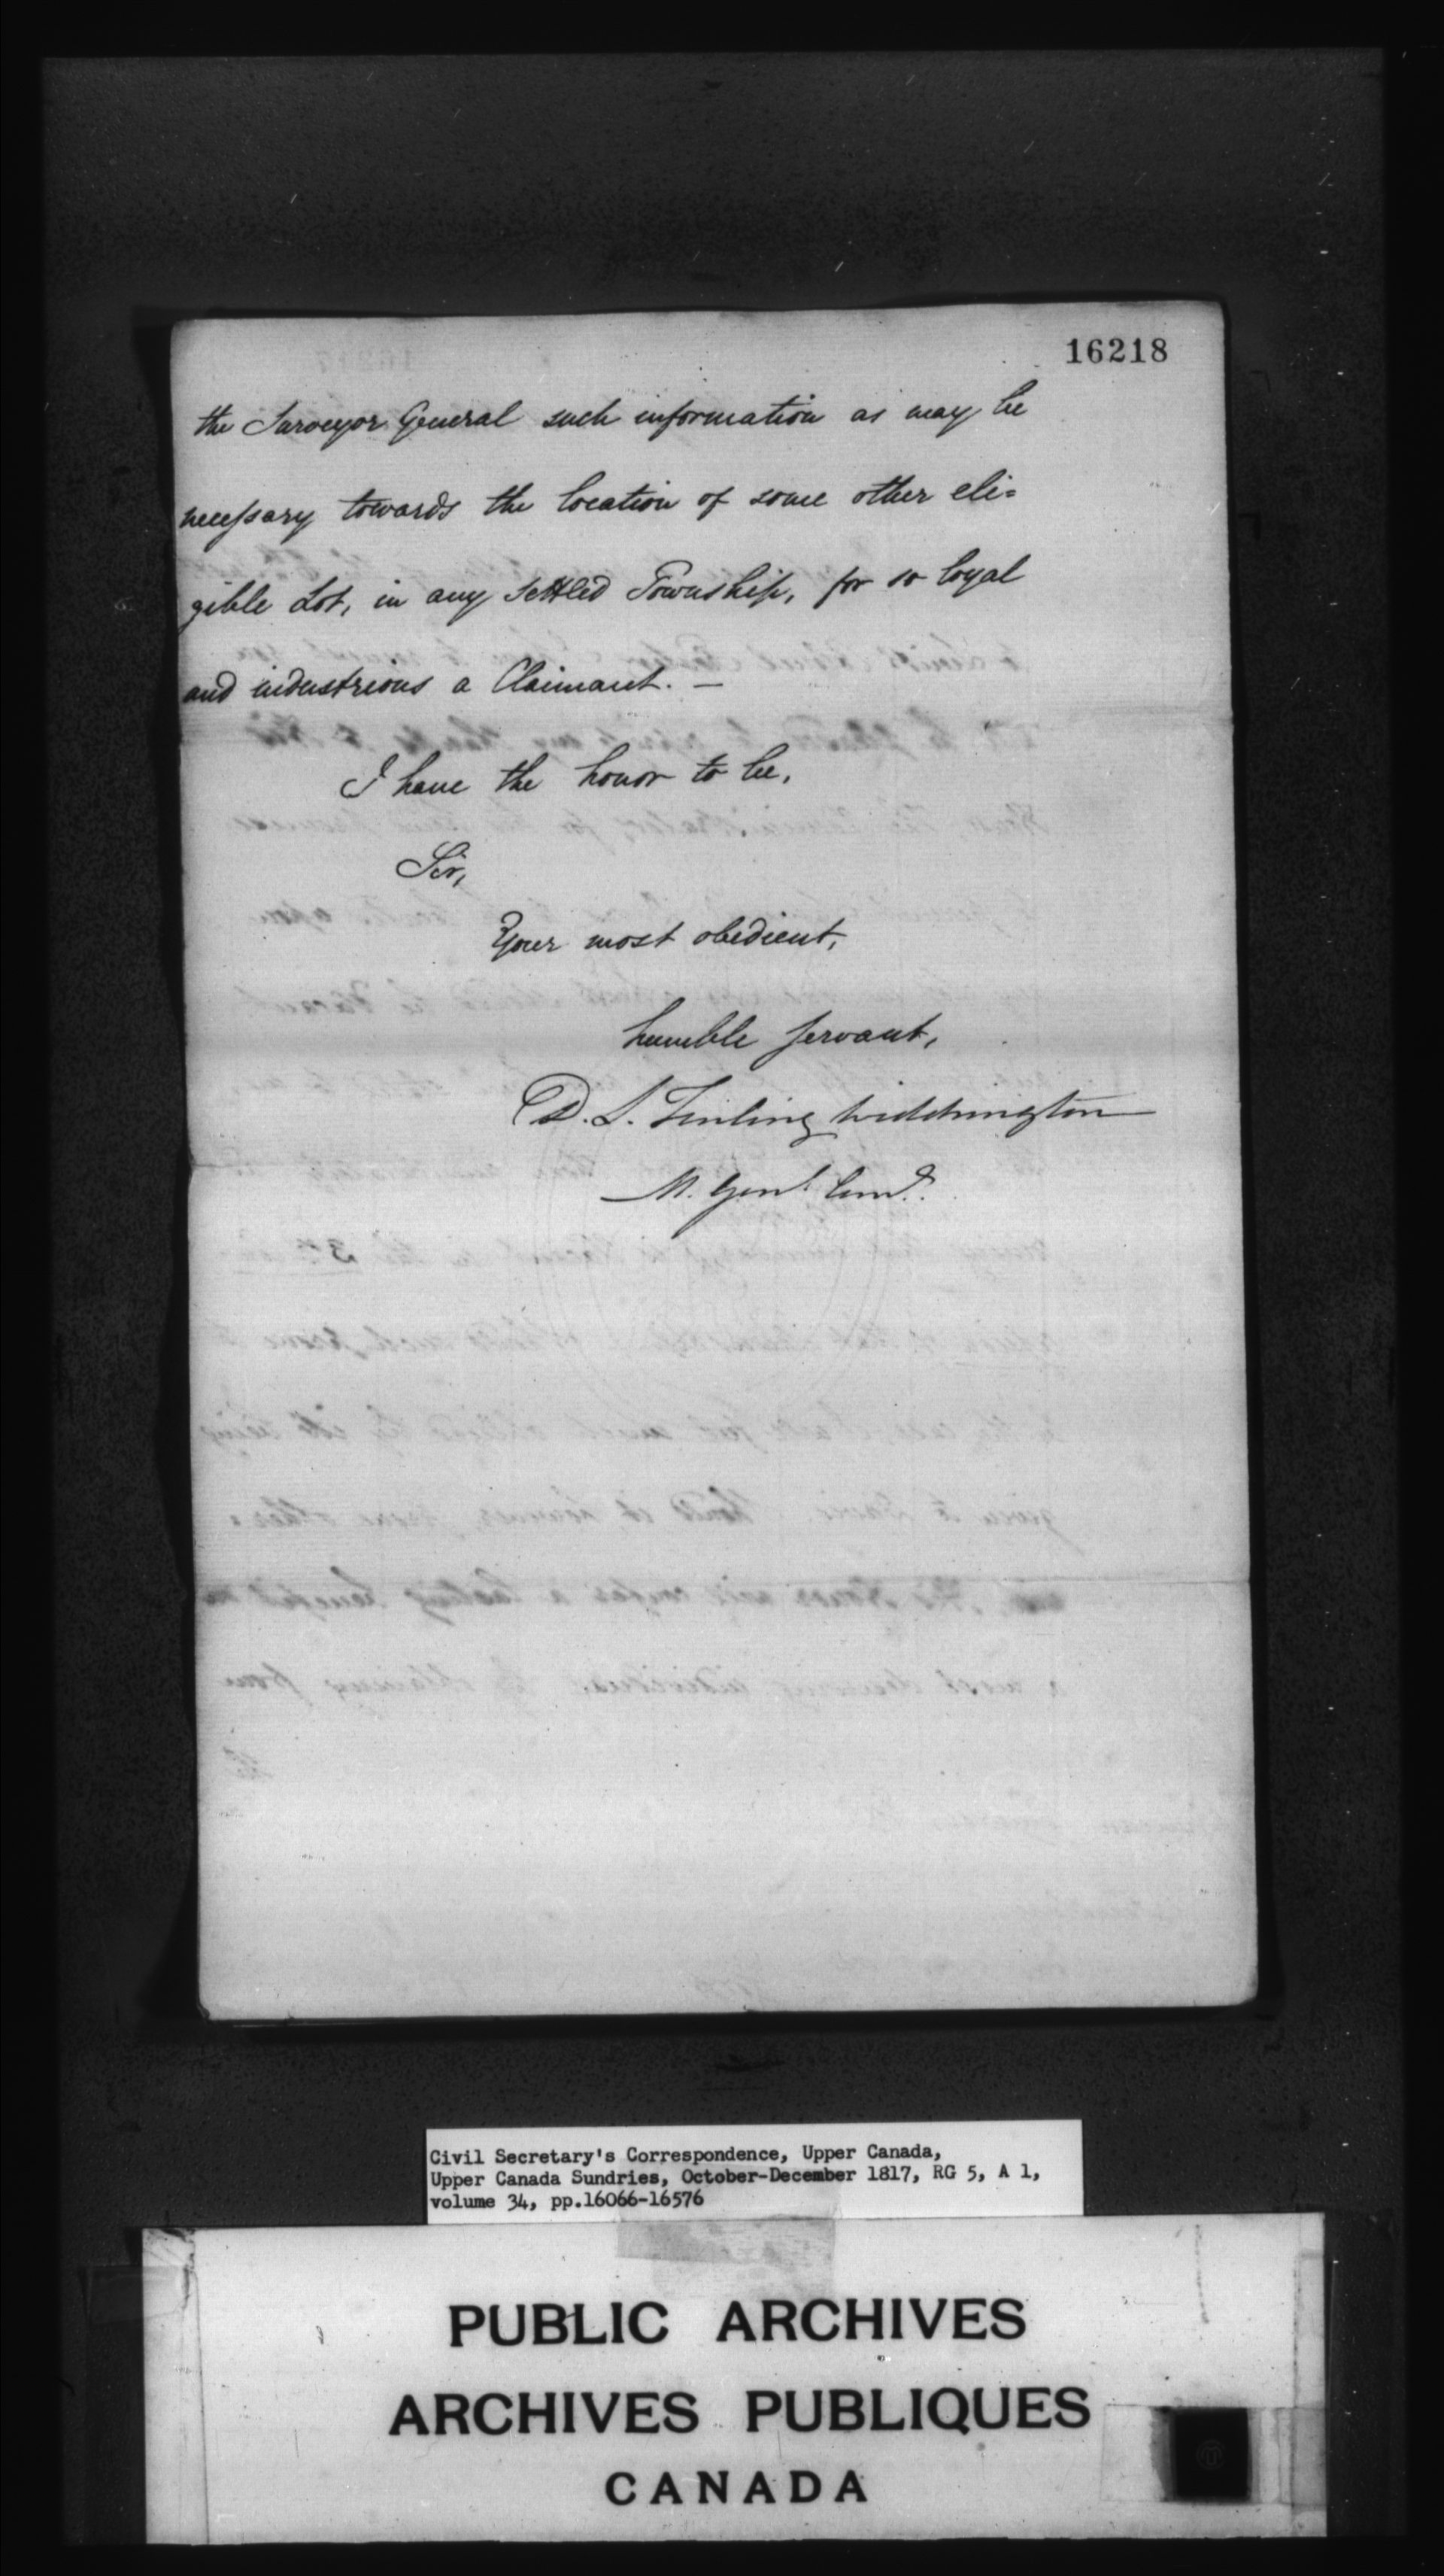 16218
the Surveyor General such information as may be
necessary towards the location of some other eli=
gible Lot, in any settled Township, for so loyal
and industrious a Claimant. —
I have the honor to be,
Sir,
Your most obedient,
humble servant,
D. L. Tinling Widdrington
M. Genl. Comd.
Civil Secretary's Correspondence, Upper Canada,
Upper Canada Sundries, October-December 1817, RG 5, A 1,
volume 34, pp.16066-16576
PUBLIC ARCHIVES
ARCHIVES PUBLIQUES
CANADA